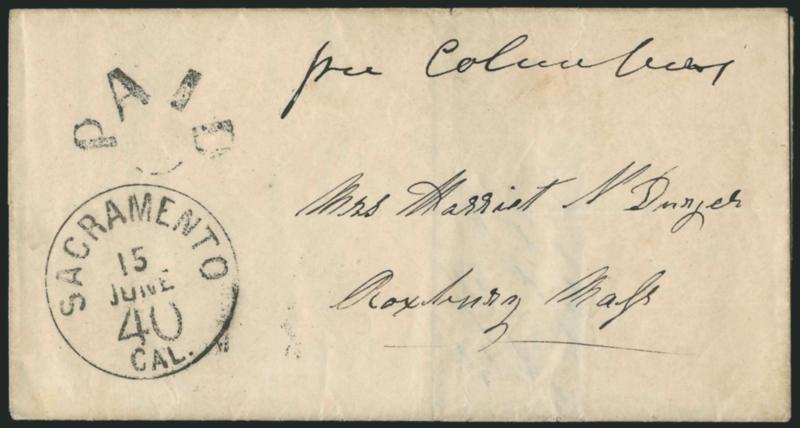 per Columbus
PAID
SACRAMENTO
15
JUNE
40
CAL.
Mrs Harriet N Dunzer
Roxbury Mass